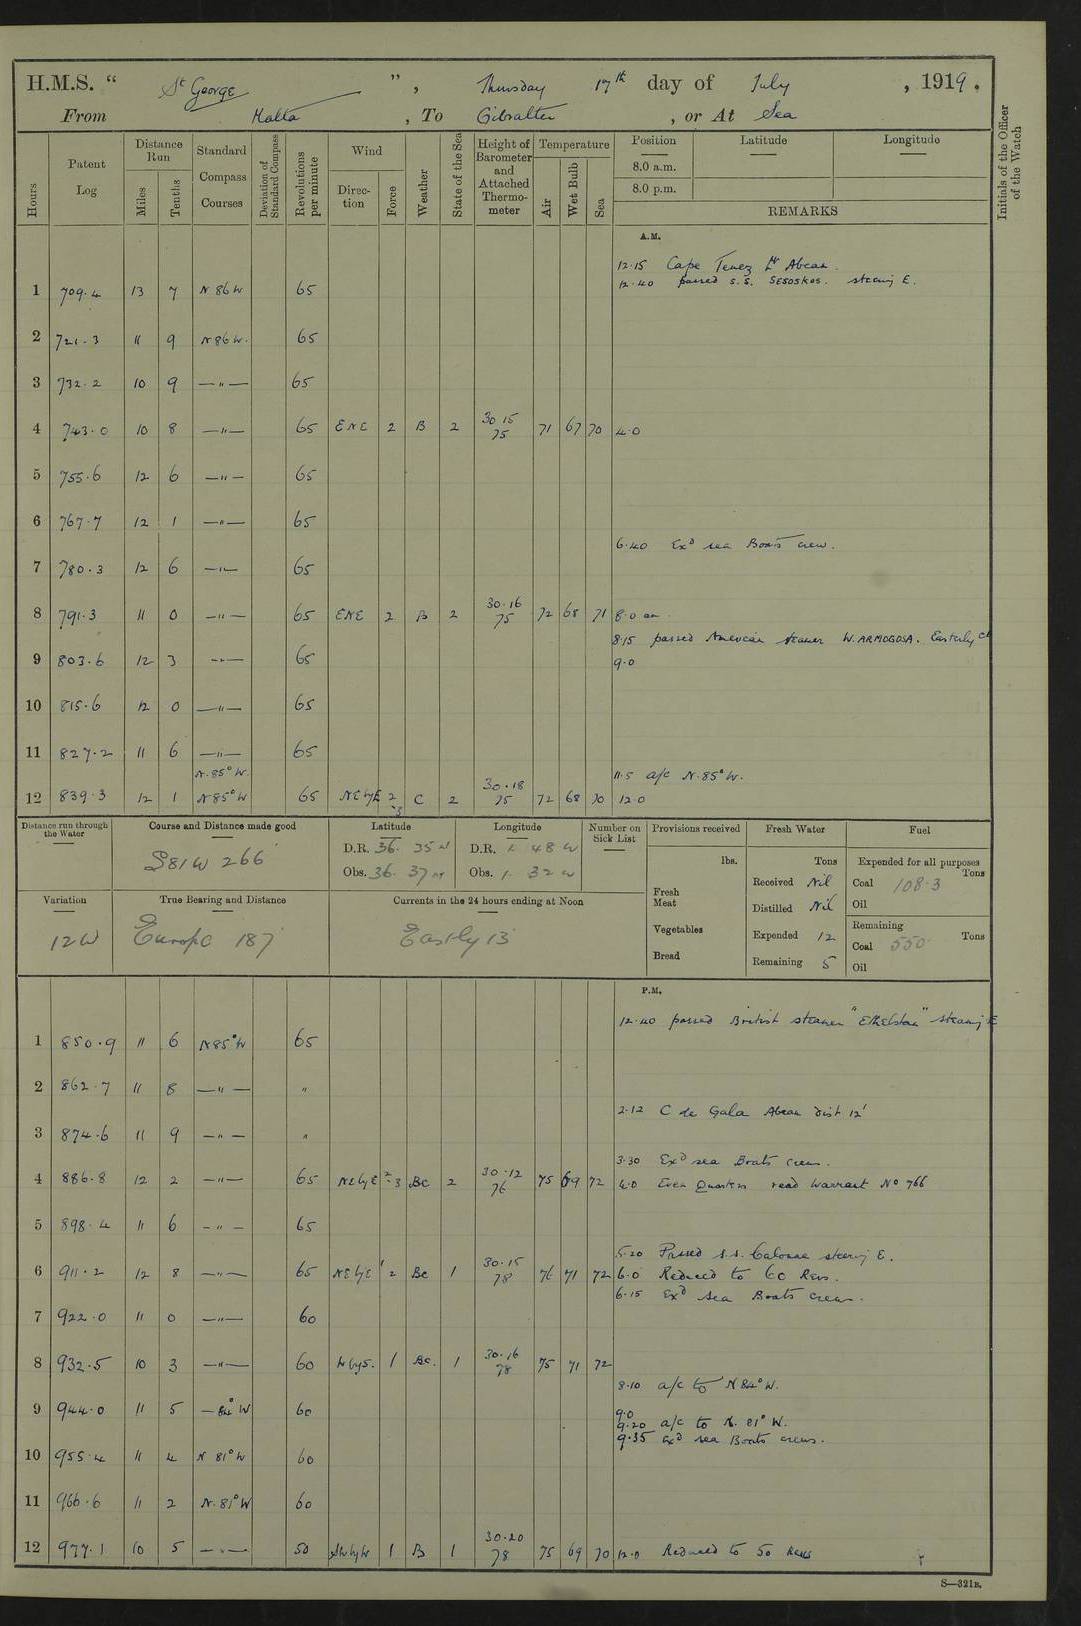 H.M.S. “ St George ”, Thursday 17th day of July, 1919.
From Malta, To Gibraltar, or At Sea
Hours
Patent Log
Distance Run
Miles
Tenths
Standard Compass Courses
Deviation of Standard Compass
Revolutions per minute
Wind
Direction
Force
Weather
State of the Sea
Height of Barometer and Attached Thermometer
Temperature
Air
Wet Bulb
Sea
Position Latitude Longitude
8.0 a.m.
8.0 p.m.
REMARKS
Initials of the Officer of the Watch
A.M.
12.15 Cape Tenez Lt Abeam.
12.40 passed S.S. SESOSKOS. steering E.
1 709.4 13 7 N 86 W 65
2 721.3 11 9 N 86 W. 65
3 732.2 10 9 —"— 65
4 743.0 10 8 —"— 65 ENE 2 B 2 30.15 75 71 67 70 4.0
5 755.6 12 6 —"— 65
6 767.7 12 1 —"— 65
6.40 Exd sea Boats crew.
7 780.3 12 6 —"— 65
8 791.3 11 0 —"— 65 ENE 2 B 2 30.16 75 72 68 71 8.0 am.
8.15 passed American steamer W. ARMOGOSA. Easterly Co
9 803.6 12 3 —"— 65 9.0
10 815.6 12 0 —"— 65
11 827.2 11 6 —"— 65
N.85°W. 11.5 a/c N.85°W.
12 839.3 12 1 N85°W 65 NEbyE 2-3 C 2 30.18 75 72 68 70 12.0
Distance run through the Water
Course and Distance made good
S81W 266
Latitude
D.R. 36. 35 N
Obs. 36. 37 N
Longitude
D.R. 1. 48 W
Obs. 1. 32 W
Number on Sick List
Provisions received
lbs.
Fresh Meat
Vegetables
Bread
Fresh Water
Tons
Received Nil
Distilled Nil
Expended 12
Remaining 5
Fuel
Expended for all purposes
Tons
Coal 108.3
Oil
Remaining
Coal 550 Tons
Oil
Variation
12W
True Bearing and Distance
Europa 187'
Currents in the 24 hours ending at Noon
Eastly 13'
P.M.
12.40 passed British steamer "Ethelstan" steaming E
1 850.9 11 6 N85°W 65
2 862.7 11 8 —"— "
2.12 C de Gata Abeam dist 12'
3 874.6 11 9 —"— "
3.30 Exd sea Boats crew.
4 886.8 12 2 —"— 65 NEbyE 2-3 BC 2 30.12 76 75 69 72 4.0 Even Quarters read Warrant No 766
5 898.4 11 6 —"— 65
5.20 Passed s.s. steering E.
6 911.2 12 8 —"— 65 NEbyE 1-2 BC 1 30.15 78 76 71 72 6.0 Reduced to 60 Revs.
6.15 Exd Sea Boats crew.
7 922.0 11 0 —"— 60
8 932.5 10 3 —"— 60 WbyS. 1 BC. 1 30.16 78 75 71 72
8.10 a/c to N84°W.
9 944.0 11 5 —84°W 60 9.0
9.20 a/c to N. 81° W.
9.35 Exd sea Boats crews.
10 955.4 11 4 N 81°W 60
11 966.6 11 2 N.81°W 60
12 977.1 10 5 —"— 50 SWbyW 1 B 1 30.20 78 75 69 70 12.0 Reduced to 50 Revs
S—321B.